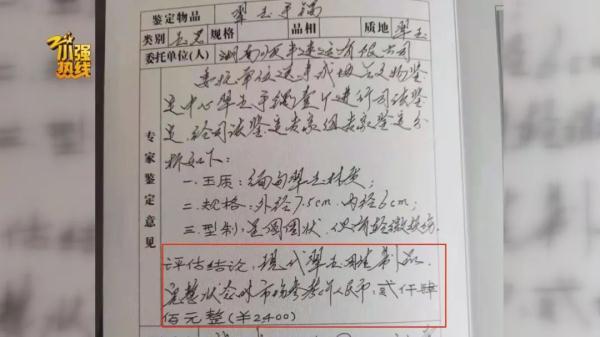 小强热线
鉴定物品 翠玉手镯
类别 玉器 规格 品相 质地 翠玉
委托单位(人) 湖南 有限公司
委托单位送来 文物鉴
定中心翠玉手镯壹个进行司法鉴
定,经司法鉴定专家组专家鉴定分
析如下:
专家鉴定意见
一.玉质:缅甸翠玉材质;
二.规格:外径7.5cm,内径6cm;
三.型制:呈圆圈状,
评估结论:现代翠玉 制品,
完整状态时市场参考价人民币:贰仟肆
佰元整(¥2,400)